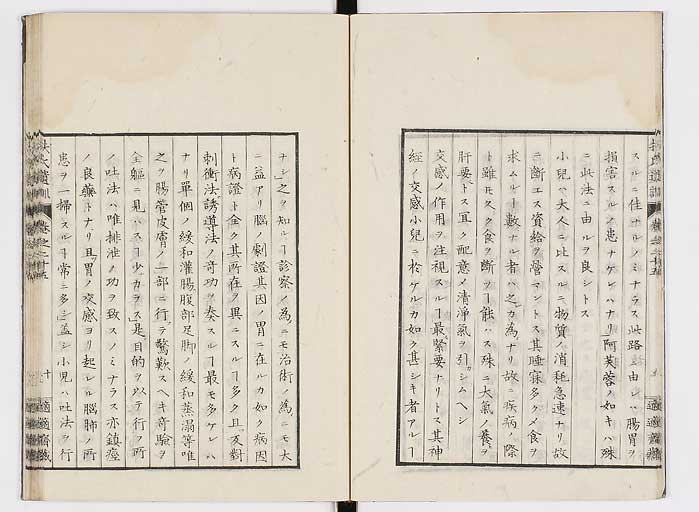 スルニ佳ナルノミナラス此路ニ由レハ腸胃ヲ
損害スルノ患ナケレハナリ阿芙蓉ノ如キハ殊
ニ此法ニ由ルヲ良シトス
小兒ハ大人ニ比スルニ物質ノ消耗急速ナリ故
ニ断エス資給ヲ營マントス其睡寐多ク食ヲ
求ムルヿ數ナル者ハ之カ為ナリ故ニ疾病ノ際
ト雖モ久ク食ヲ断ツヿ能ハス殊ニ大氣ノ養ヲ
肝要トス宜ク配意メ清淨氣ヲ引カシムヘシ
交感ノ作用ヲ注視スルヿ最緊要ナリトス其神
經ノ交感小兒ニ於ケルカ如ク甚シキ者アルヿ
ナシ之ヲ知ルヿ診察ノ為ニモ治術ノ為ニモ大
ニ益アリ腦ノ劇證其因ノ胃ニ在ルカ如ク病因
ト病證ト全ク其所在ヲ異ニスルヿ多ク且反對
刺衝法誘導法ノ奇功ヲ奏スルヿ最モ多ケレハ
ナリ單個ノ緩和灌腸腹部足脚ノ緩和蒸溻等唯
之ヲ腸管皮膚ノ一部ニ行テ驚歎スヘキ奇驗ヲ
全軀ニ見ハスヿ少カラス是目的ヲ以テ行フ所
ノ吐法ハ唯排泄ノ功ヲ致スノミナラス亦鎮痙
ノ良藥トナリ且胃ノ交感ヨリ起レル腦肺ノ所
患ヲ一掃スルヿ常ニ多シ蓋シ小兒ハ吐法ヲ行
氏遺訓
卷之二十五
十
適適齋藏